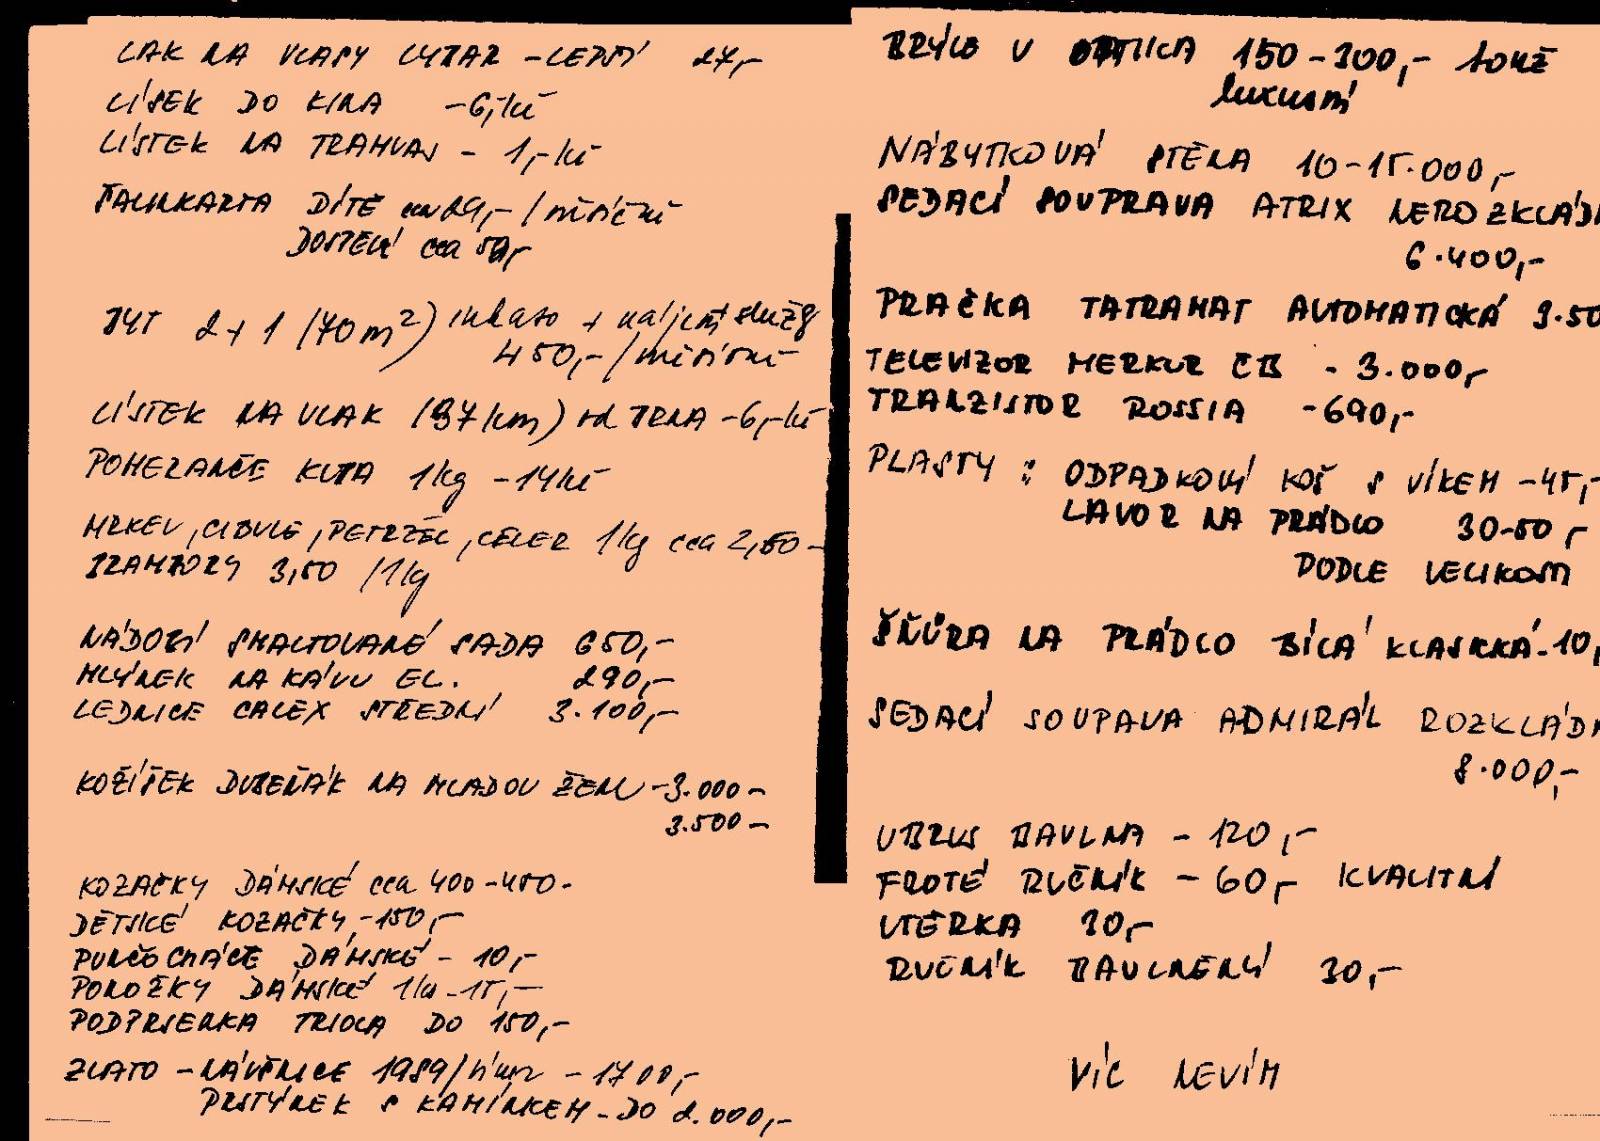 LAK NA VLASY LYBAR - LEPŠÍ 27,-
LÍSEK DO KINA - 6,- Kč
LÍSTEK NA TRAMVAJ - 1,- Kč
ŠALINKARTA DÍTĚ cca 29,- / měsíční
DOSPĚLÍ cca 50,-
BYT 2+1 (70m²) inkaso + nájem služby
450,- / měsíčně
LÍSTEK NA VLAK (37 km) od BRNA - 6,- Kč
POMERANČE KUBA 1kg - 14 Kč
MRKEV, CIBULE, PETRŽEL, CELER 1kg cca 2,50 -
BRAMBORY 3,50 / 1kg
NÁDOBÍ SMALTOVANÉ SADA 650,-
MLÝNEK NA KÁVU EL. 290,-
LEDNICE CALEX STŘEDNÍ 3.100,-
KOŽÍŠEK DUBEŇÁK NA MLADOU ŽENU - 3.000 -
3.500 -
KOZAČKY DÁMSKÉ cca 400 - 450 -
DĚTSKÉ KOZAČKY - 150,-
PUNČOCHÁČE DÁMSKÉ - 10,-
PONOŽKY DÁMSKÉ - 15,-
PODPRSENKA TRIOLA DO 150,-
ZLATO - NÁUŠNICE 1989 - 1700,-
PRSTÝNEK S KAMÍNKEM - DO 2.000,-
BRÝLE V OPTICE 150 - 300,- TOHLE
luxusní
NÁBYTKOVÁ STĚNA 10 - 15.000,-
SEDACÍ SOUPRAVA ATRIX NEROZKLÁD
6.400,-
PRAČKA TATRAMAT AUTOMATICKÁ 3.50
TELEVIZOR MERKUR ČB - 3.000,-
TRANZISTOR ROSSIA - 690,-
PLASTY : ODPADKOVÝ KOŠ S VÍKEM - 45,-
LAVOR NA PRÁDLO 30-50,-
PODLE VELIKOSTI
ŠŇŮRA NA PRÁDLO BÍLÁ KLASICKÁ - 10,
SEDACÍ SOUPAVA ADMIRÁL ROZKLÁD
8.000,-
UBRUS BAVLNA - 120,-
FROTÉ RUČNÍK - 60,- KVALITNÍ
UTĚRKA 30,-
RUČNÍK BAVLNĚNÝ 30,-
VÍC NEVÍM